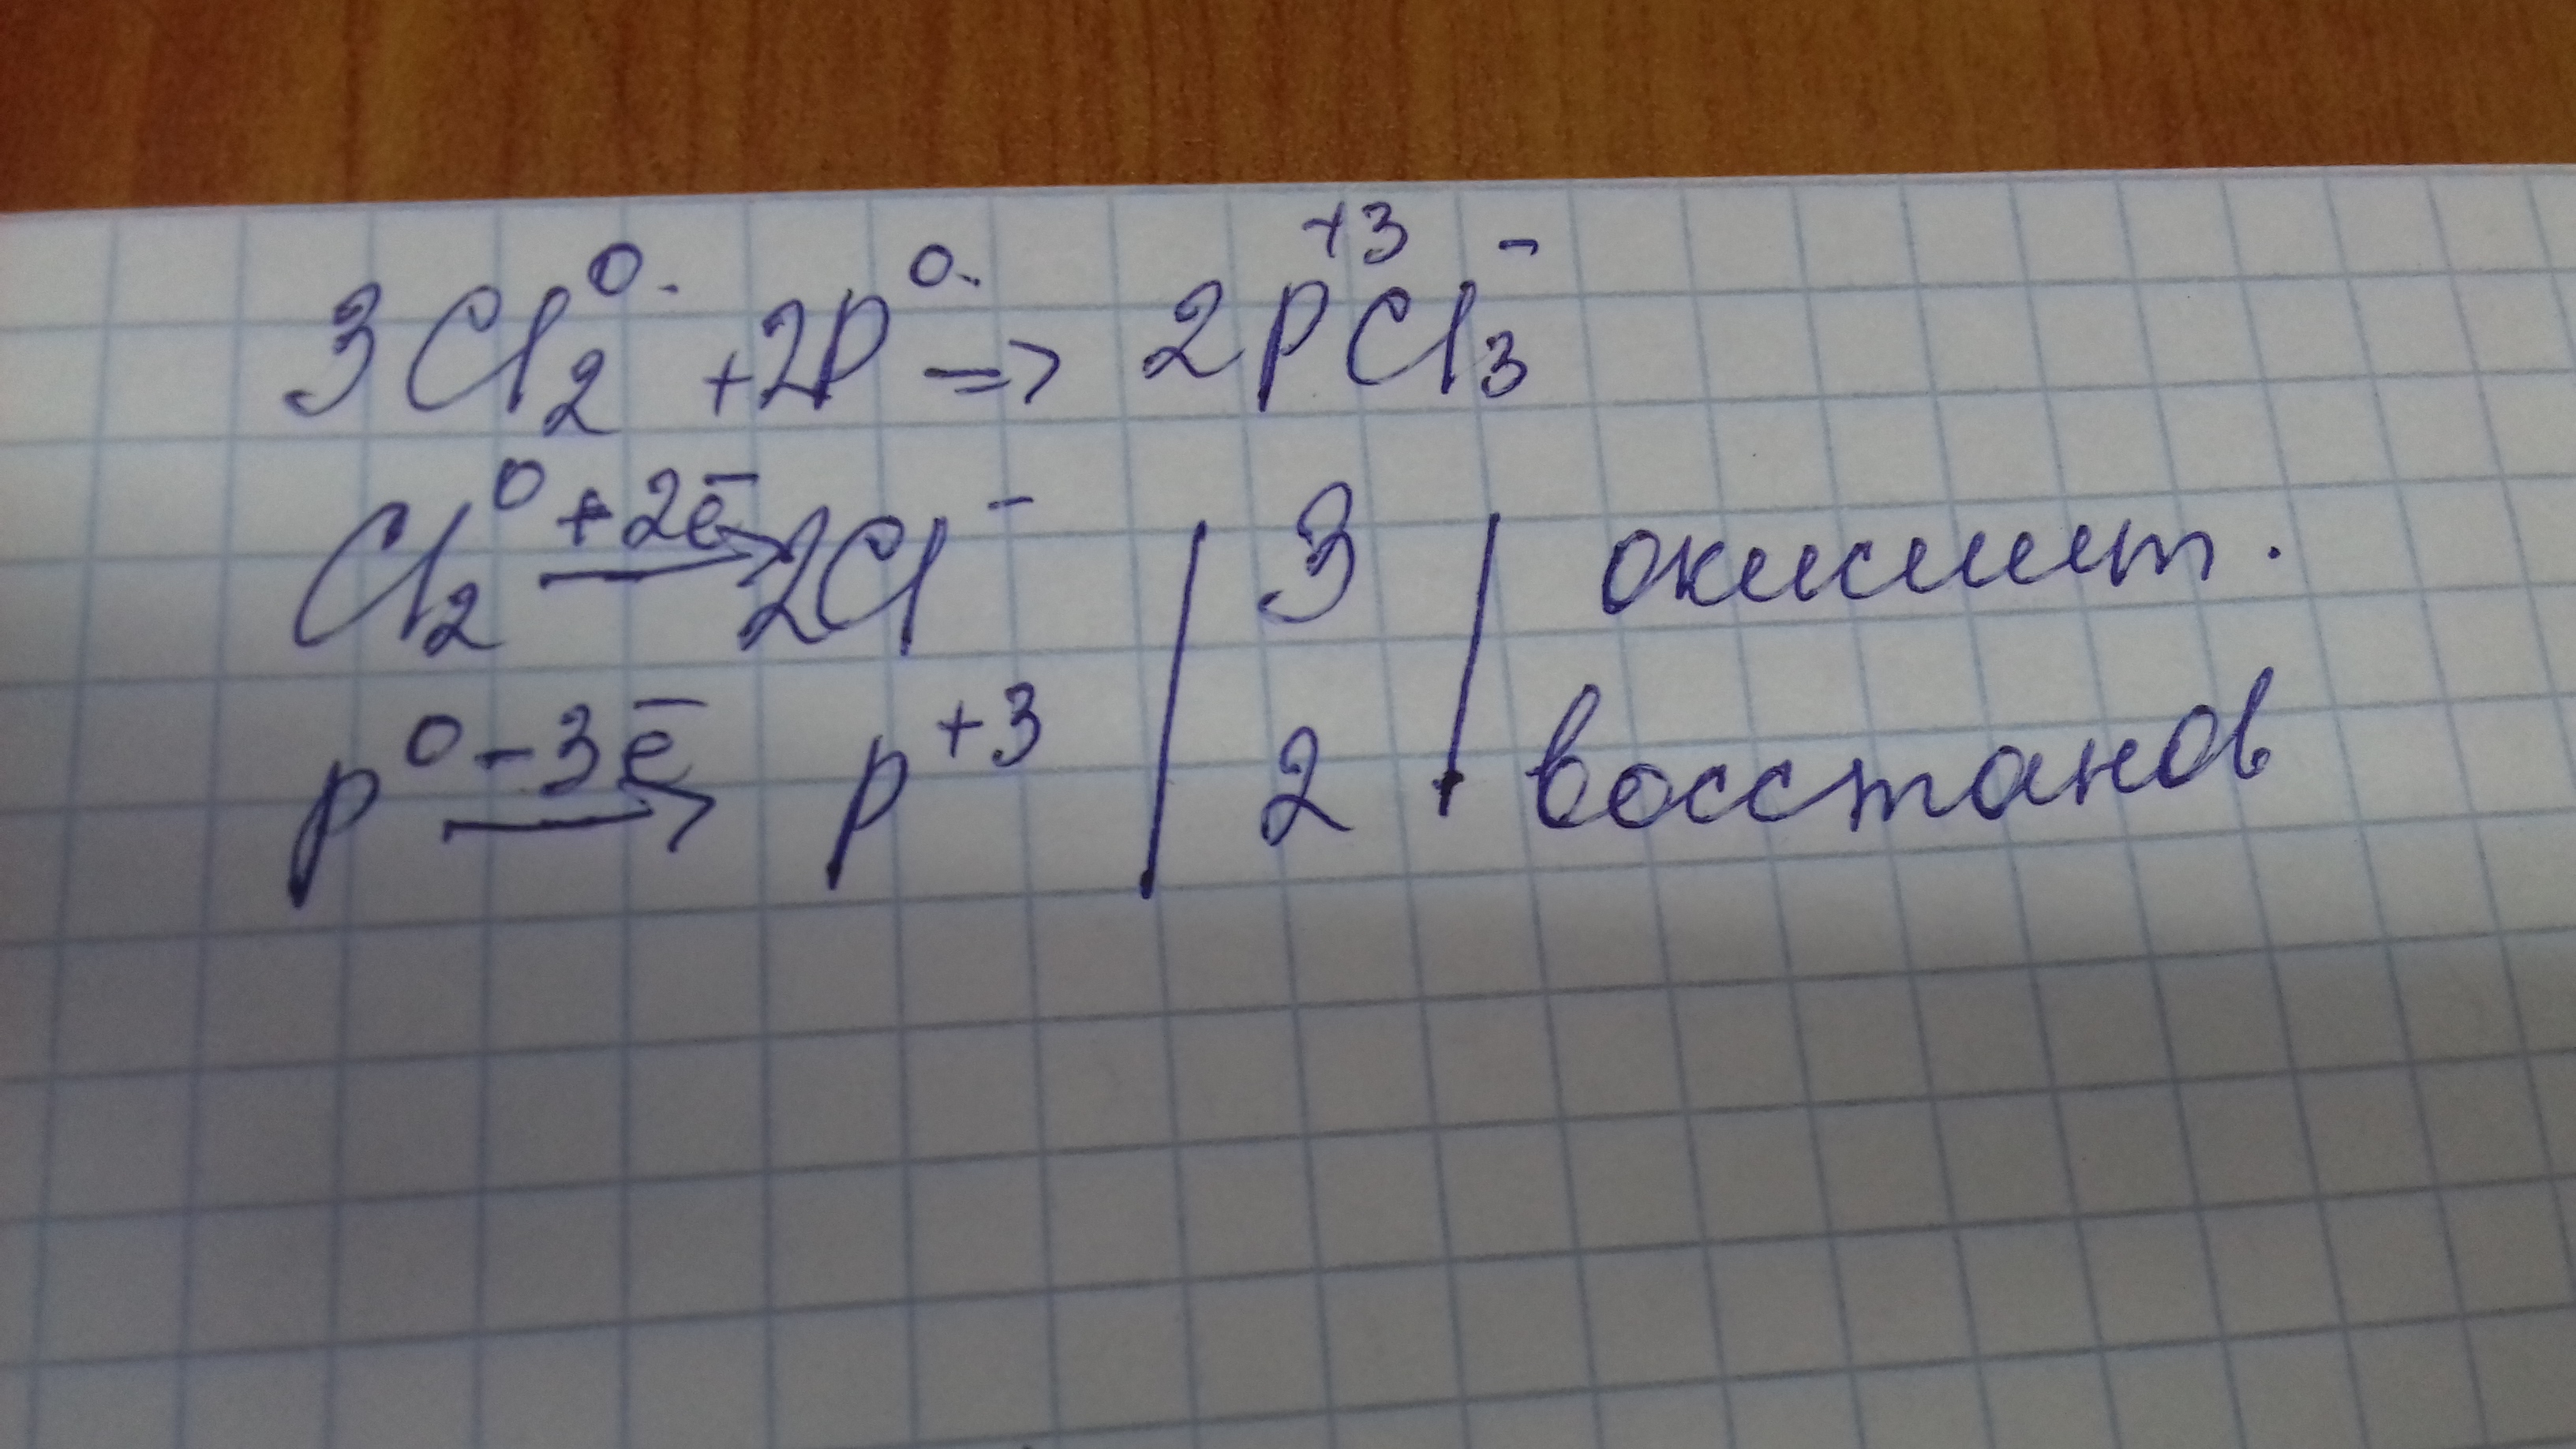 3Cl₂⁰ + 2P⁰ => 2P⁺³Cl₃⁻
Cl₂⁰ +2ē → 2Cl⁻ | 3 | окислит.
P⁰ -3ē → P⁺³ | 2 | восстанов